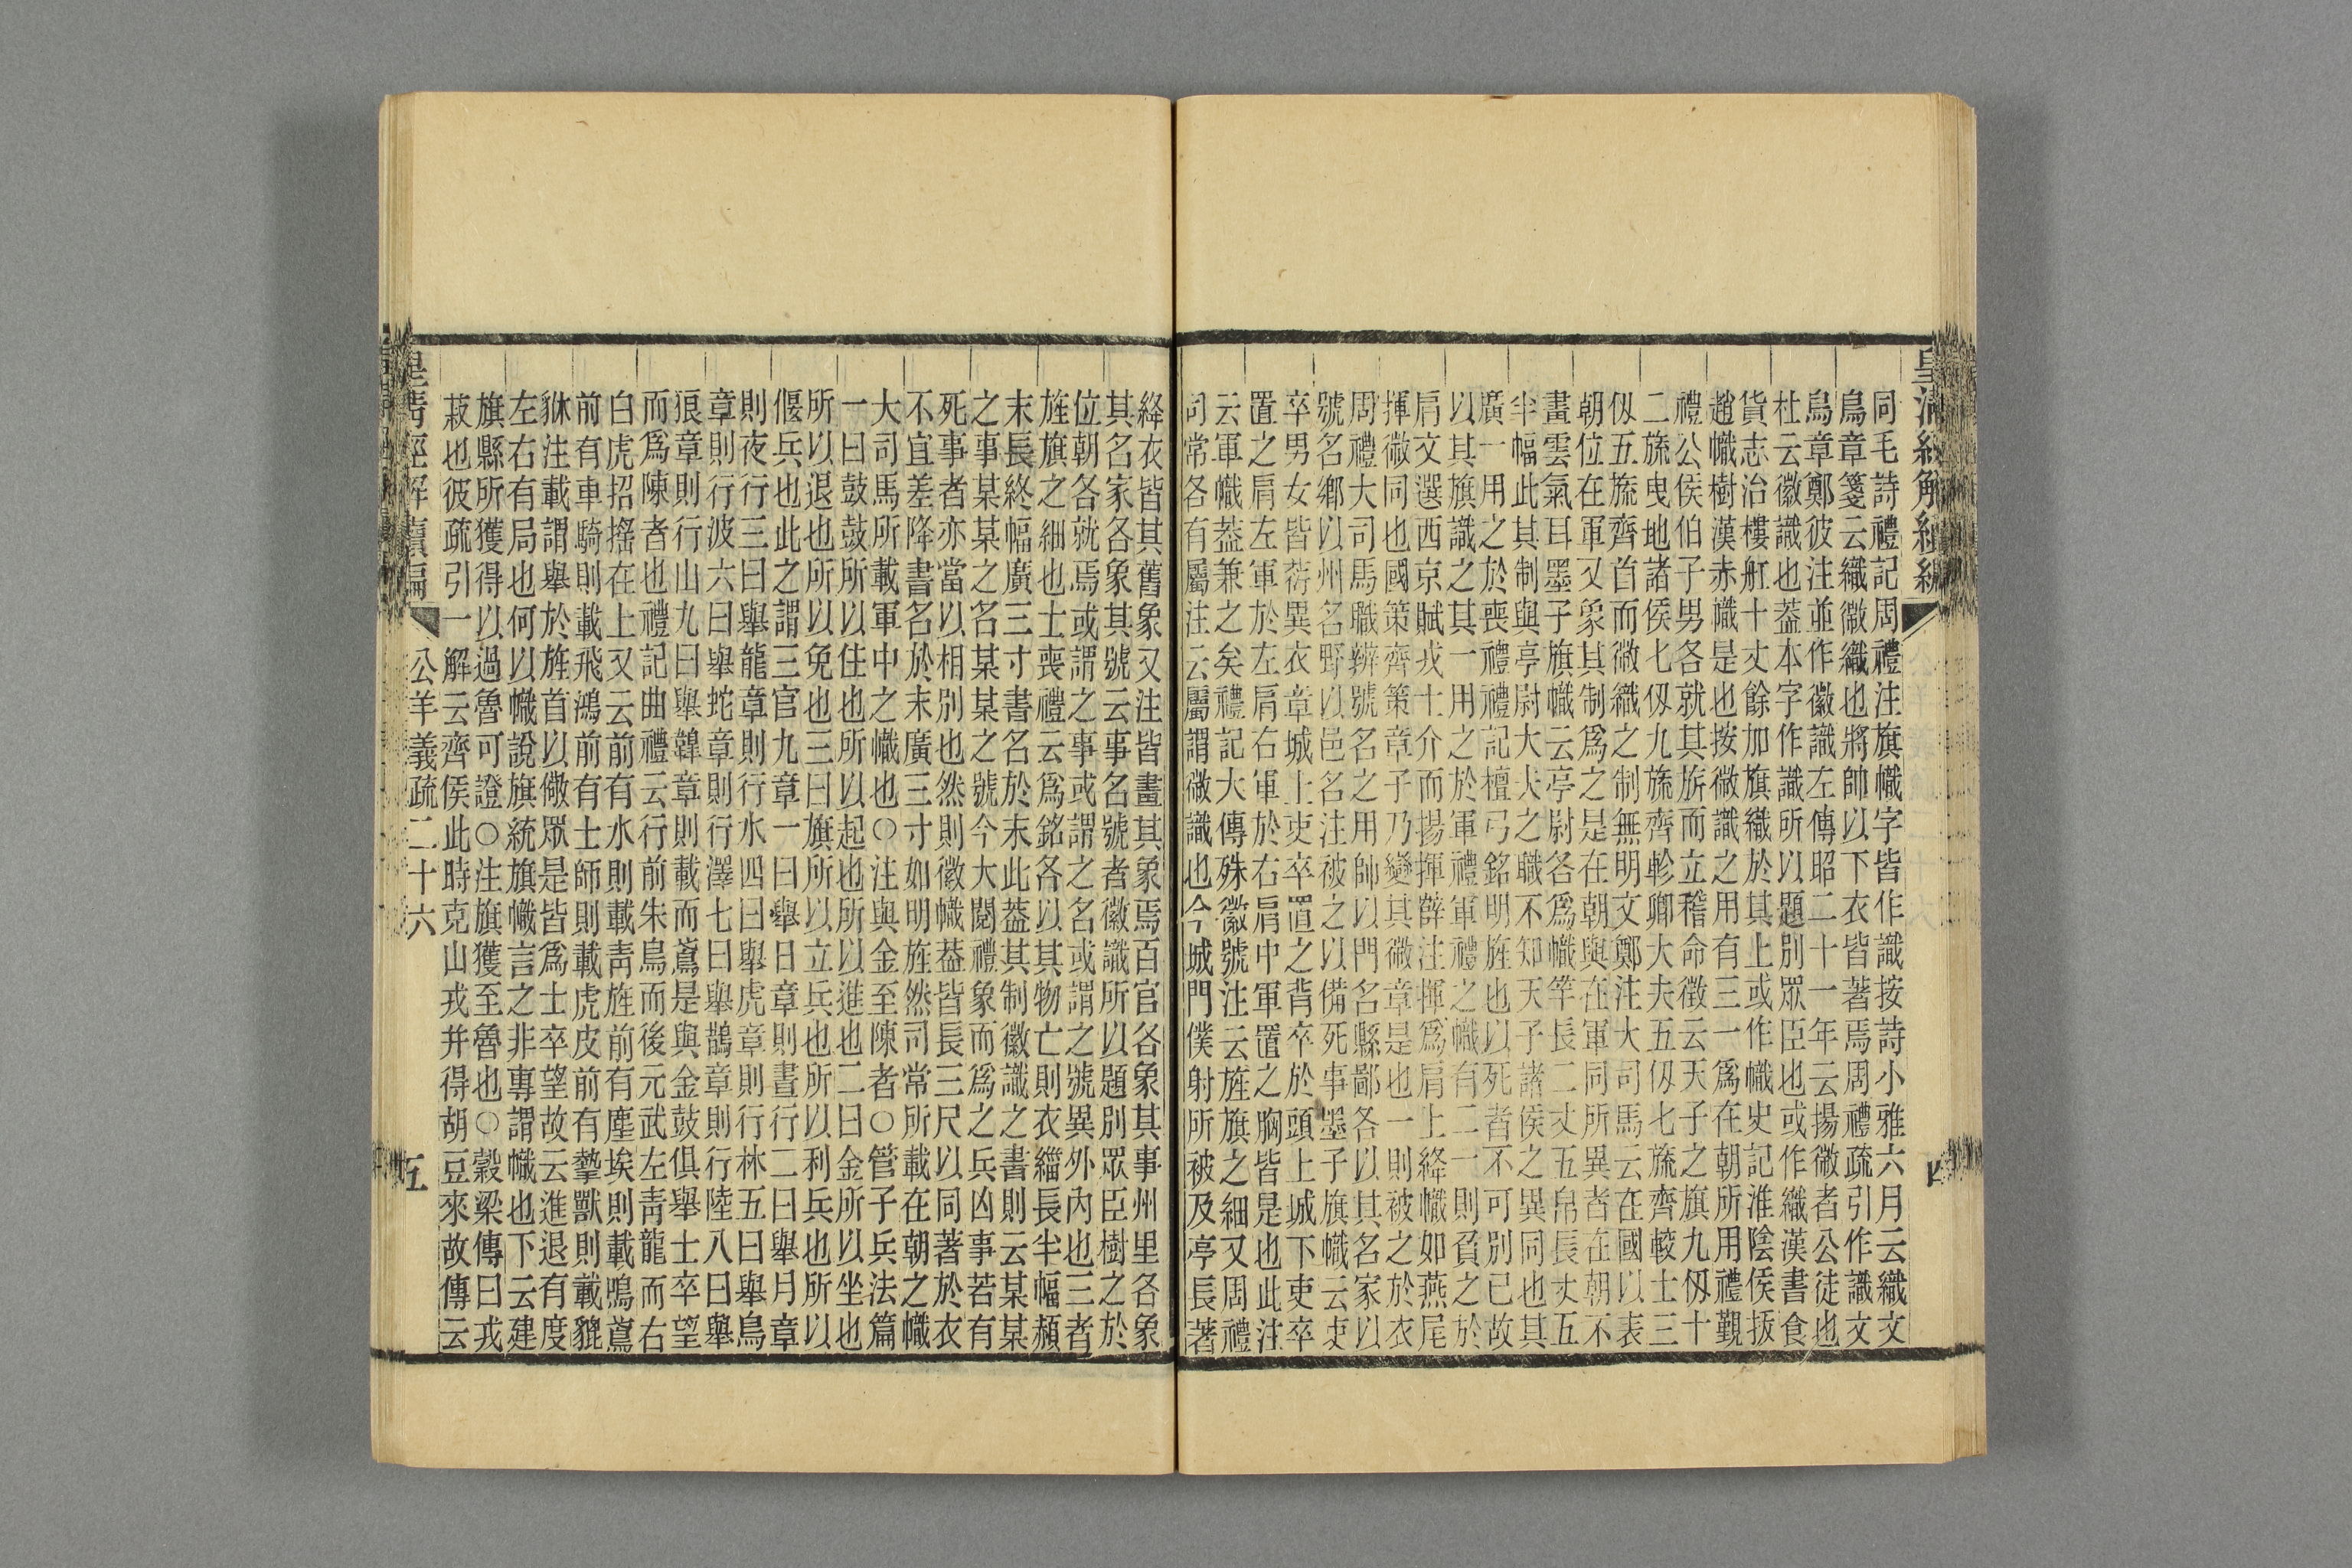 皇清經解續編
同毛詩禮記周禮注旗幟字皆作識按詩小雅六月云織文
鳥章箋云織徽織也將帥以下衣皆著焉周禮疏引作識文
鳥章鄭彼注並作徽識左傳昭二十一年云揚徽者公徒也
杜云徽識也葢本字作識所以題別眾臣也或作織漢書食
貨志治樓舡十丈餘加旗織於其上或作幟史記淮陰侯拔
趙幟樹漢赤幟是也按徽識之用有三一為在朝所用禮覲
禮公侯伯子男各就其旂而立稽命徵云天子之旗九仞十
二旒曳地諸侯七仞九旒齊軫卿大夫五仞七旒齊較士三
仞五旒齊首而徽織之制無明文鄭注大司馬云在國以表
朝位在軍又象其制為之是在朝與在軍同所異者在朝不
畫雲氣耳墨子旗幟云亭尉各為幟竿長二丈五帛長丈五
半幅此其制與亭尉大夫之職不知天子諸侯之異同也其
廣一用之於喪禮禮記檀弓銘明旌也以死者不可別已故
以其旗識之其一用之於軍禮軍禮之幟有二一則負之於
肩文選西京賦戎士介而揚揮薛注揮為肩上絳幟如燕尾
揮徽同也國策齊策章子乃變其徽章是也一則被之於衣
周禮大司馬職辨號名之用帥以門名縣鄙各以其名家以
號名鄉以州名野以邑名注被之以備死事墨子旗幟云吏
卒男女皆荇異衣章城上吏卒置之背卒於頭上城下吏卒
置之肩左軍於左肩右軍於右肩中軍置之胸皆是也此注
云軍幟葢兼之矣禮記大傳殊徽號注云旌旗之細又周禮
司常各有屬注云屬謂徽識也今城門僕射所被及亭長著
絳衣皆其舊象又注皆畫其象焉百官各象其事州里各象
其名家各象其號云事名號者徽識所以題別眾臣樹之於
位朝各就焉或謂之事或謂之名或謂之號異外內也三者
旌旗之細也士喪禮云為銘各以其物亡則衣緇長半幅赬
末長終幅廣三寸書名於末此葢其制徽識之書則云某某
之事某某之名某某之號今大閱禮象而為之兵凶事若有
死事者亦當以相別也然則徽幟葢皆長三尺以同著於衣
不宜差降書名於末廣三寸如明旌然司常所載在朝之幟
大司馬所載軍中之幟也○注與金至陳者○管子兵法篇
一曰鼓鼓所以任也所以起也所以進也二曰金所以坐也
所以退也所以免也三曰旗所以立兵也所以利兵也所以
偃兵也此之謂三官九章一曰舉日章則晝行二曰舉月章
則夜行三曰舉龍章則行水四曰舉虎章則行林五曰舉鳥
章則行波六曰舉蛇章則行澤七曰舉鵲章則行陸八曰舉
狼章則行山九曰舉韓章則載而鳶是與金鼓俱舉士卒望
而為陳者也禮記曲禮云行前朱鳥而後元武左青龍而右
白虎招搖在上又云前有水則載青旌前有塵埃則載鳴鳶
前有車騎則載飛鴻前有士師則載虎皮前有摯獸則載貔
貅注載謂舉於旌首以儆眾是皆為士卒望故云進退有度
左右有局也何以幟說旗統旗幟言之非專謂幟也下云建
旗縣所獲得以過魯可證○注旗獲至魯也○穀梁傳曰戎
菽也彼疏引一解云齊侯此時克山戎并得胡豆來故傳云
皇清經解續編 公羊義疏二十六 五